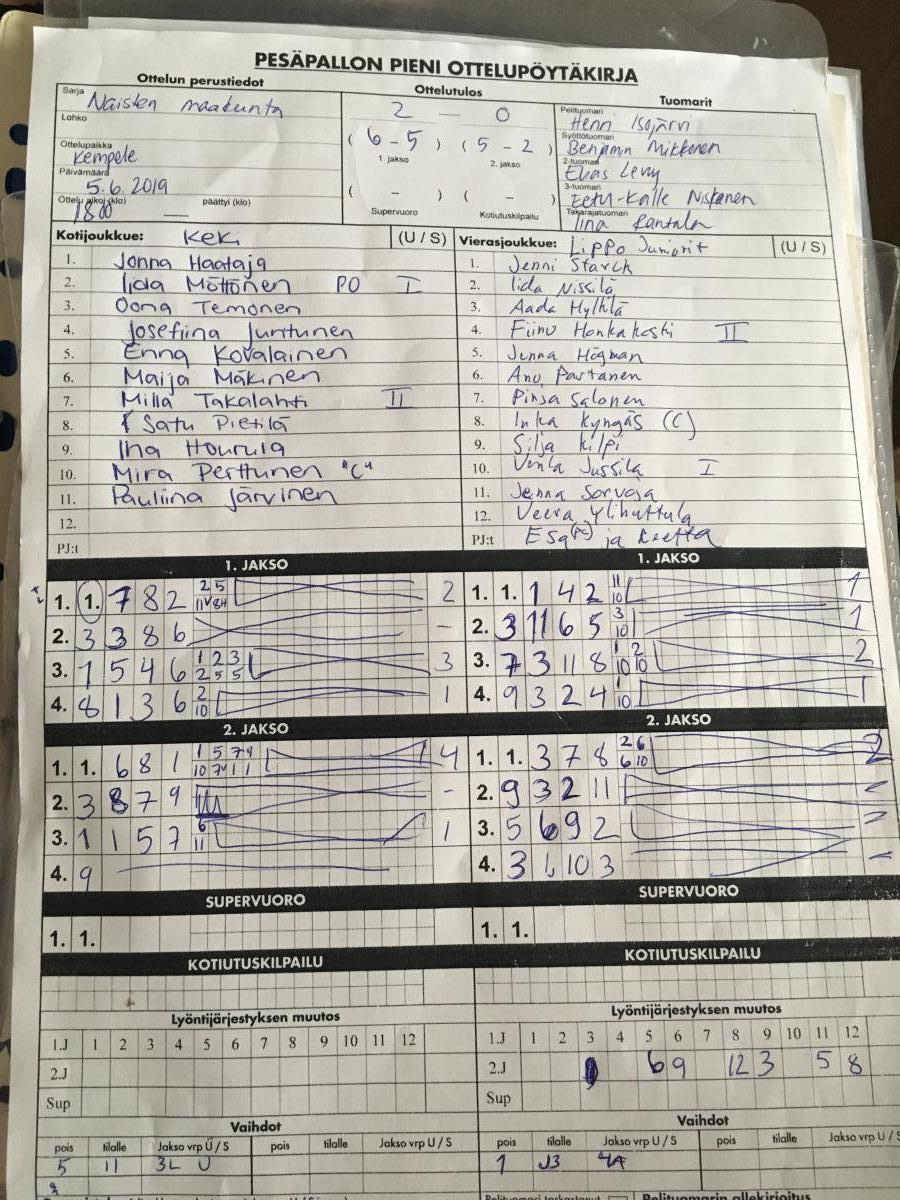 PESÄPALLON PIENI OTTELUPÖYTÄKIRJA
Ottelun perustiedot
Sarja Naisten maakunta
Lohko
Ottelupaikka
Kempele
Päivämäärä
5.6.2019
Ottelu alkoi (klo) 1800 päättyi (klo)
Ottelutulos
2 - 0
(6 - 5) (5 - 2)
1. jakso 2. jakso
( - ) ( - )
Supervuoro Kotiutuskilpailu
Tuomarit
Pelituomari
Henri Isojärvi
Syöttötuomari
Benjamin Mikkonen
2-tuomari
Elias Levy
3-tuomari
Eetu-Kalle Niskanen
Takarajatuomari
Iina Rantala
Kotijoukkue: Keki (U / S)
1. Jonna Haataja
2. Iida Möttönen PO I
3. Oona Temonen
4. Josefiina Juntunen
5. Enna Kovalainen
6. Maija Mäkinen
7. Milla Takalahti II
8. Satu Pietilä
9. Ina Hourula
10. Mira Perttunen "C"
11. Pauliina Järvinen
12.
PJ:t
Vierasjoukkue: Lippo Juniorit (U / S)
1. Jenni Starck
2. Iida Nissilä
3. Aada
4. Honkakoski II
5. Jenna Högman
6. Anu Partanen
7. Pinja Salonen
8. Inka Kyngäs (C)
9. Silja Kilpi
10. Venla Jussila I
11. Jenna Sorvoja
12. Veera Ylihuttula
PJ:t Esa (PJ) ja Reetta
1. JAKSO
1. 1. 7 8 2 2 5 2
2. 3 3 8 6 -
3. 1 5 4 6 1 2 3 2 5 5 3
4. 8 1 3 6 2 10 1
1. JAKSO
1. 1. 1 4 2 11 10 1
2. 3 11 6 5 3 10 1
3. 7 3 11 8 1 2 10 10 2
4. 9 3 2 4 1 10 1
2. JAKSO
1. 1. 6 8 1 1 5 7 4
2. 3 8 7 9 -
3. 1 1 5 7 6 11 1
4. 9
2. JAKSO
1. 1. 3 7 8 2 6 6 10 2
2. 9 3 2 11 -
3. 5 6 9 2 -
4. 3 1, 10 3 -
SUPERVUORO
1. 1.
SUPERVUORO
1. 1.
KOTIUTUSKILPAILU
KOTIUTUSKILPAILU
Lyöntijärjestyksen muutos
1.J 1 2 3 4 5 6 7 8 9 10 11 12
2.J
Sup
Lyöntijärjestyksen muutos
1.J 1 2 3 4 5 6 7 8 9 10 11 12
2.J 6 9 12 3 5 8
Sup
Vaihdot
pois tilalle Jakso vrp U / S pois tilalle Jakso vrp U / S
5 11 3L U
Vaihdot
pois tilalle Jakso vrp U / S pois tilalle Jakso vrp U / S
1 J3 4A